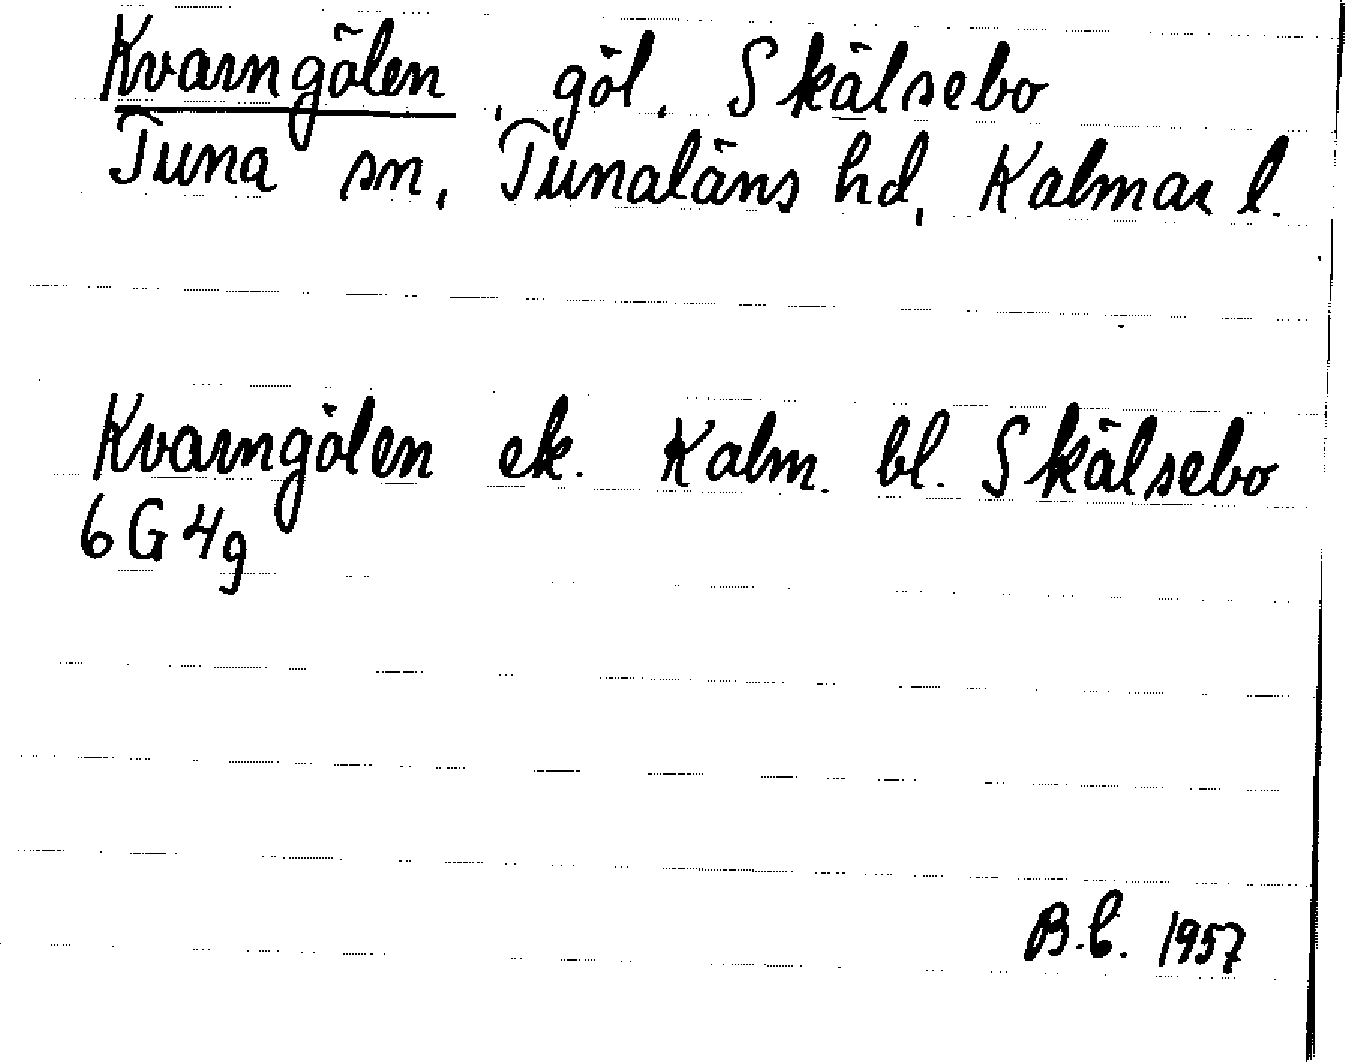 Kvarngölen, göl. Skälsebo
Tuna sn, Tunaläns hd, Kalmar l.
Kvarngölen ek. Kalm. bl. Skälsebo
6G4g
B.C. 1957